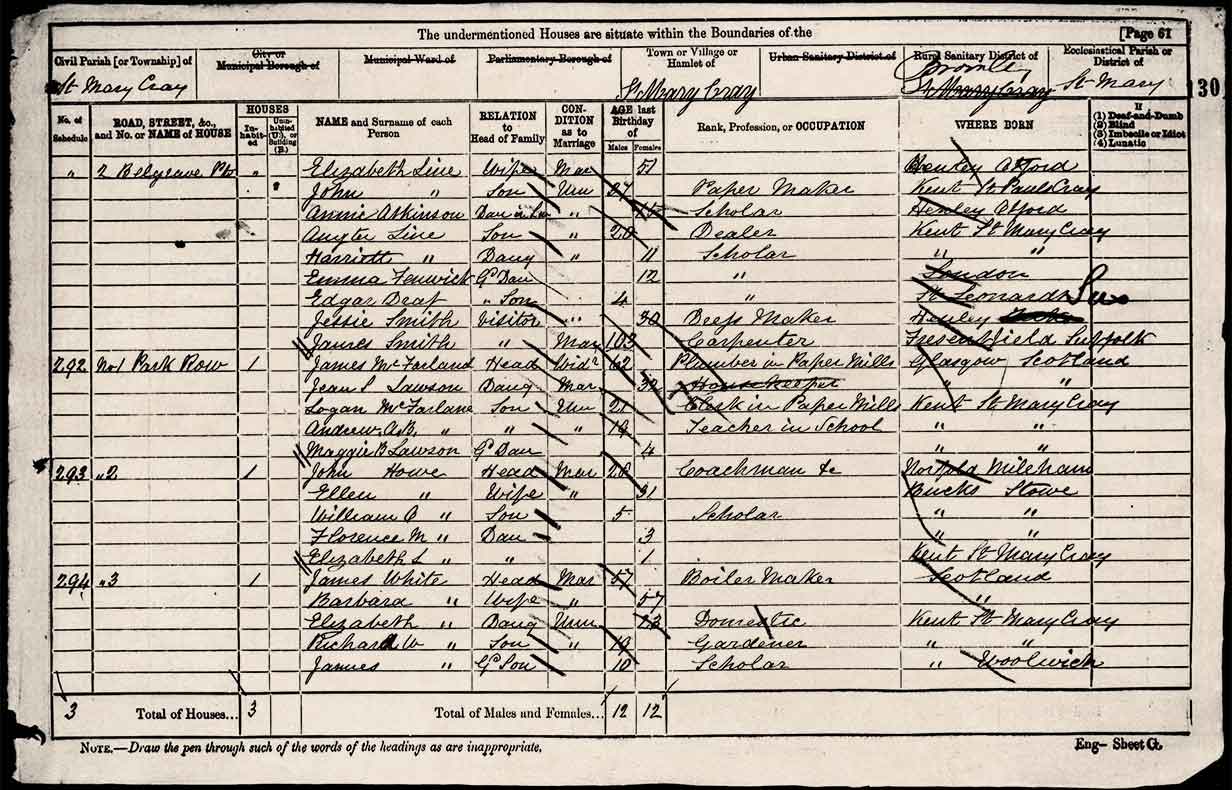 The undermentioned Houses are situate within the Boundaries of the [Page 61
Civil Parish [or Township] of City or Municipal Borough of Municipal Ward of Parliamentary Borough of Town or Village or Hamlet of Urban Sanitary District of Rural Sanitary District of Ecclesiastical Parish or District of
St Mary Cray St Mary Cray St Mary Cray St Mary
130
No. of Schedule ROAD, STREET, &c., and No. or NAME of HOUSE HOUSES In-habit-ed Unin-habited (U.), or Building (B.) NAME and Surname of each Person RELATION to Head of Family CON-DITION as to Marriage AGE last Birthday of Males Females Rank, Profession, or OCCUPATION WHERE BORN If (1) Deaf-and-Dumb (2) Blind (3) Imbecile or Idiot (4) Lunatic
" 2 Belgrave " Elizabeth Line Wife Mar 51 Henley Oxford
John " Son Un 27 Paper Maker Kent St Pauls Cray
Annie Atkinson Dau in Lw " 15 Scholar Henley Oxford
Line Son " 20 Dealer Kent St Mary Cray
Harriott " Daug " 11 Scholar " "
Emma Fenwick Gd Dau 12 " London
Edgar " Son 4 " St Leonards Sux
Jessie Smith Visitor " 30 Maker Henley
James Smith " Mar 103 Carpenter Fresentfield Suffolk
292 No 1 Park Row 1 James McFarland Head Widr 62 Plumber in Paper Mills Glasgow Scotland
Jean S Lawson Daug Mar 32 House Keeper " "
Logan McFarlane Son Un 21 Clerk in Paper Mills Kent St Mary Cray
Andrew A.B. " " " 19 Teacher in School " "
Maggie B Lawson Gd Dau 4 " "
293 " 2 1 John Howe Head Mar 28 Coachman &c Norfold Mileham
Ellen " Wife " 31 Bucks Stowe
William C " Son 5 Scholar " "
Florence M " Dau 3 " "
Elizabeth L " " 1 Kent St Mary Cray
294 " 3 1 James White Head Mar 57 Boiler Maker Scotland
Barbara " Wife " 57 "
Elizabeth " Daug Unm 23 Domestic Kent St Mary Cray
Richard W " Son " 19 Gardener " "
James " Gd Son 10 Scholar " Woolwich
3 Total of Houses... 3 Total of Males and Females... 12 12
NOTE.—Draw the pen through such of the words of the headings as are inappropriate. Eng— Sheet G.